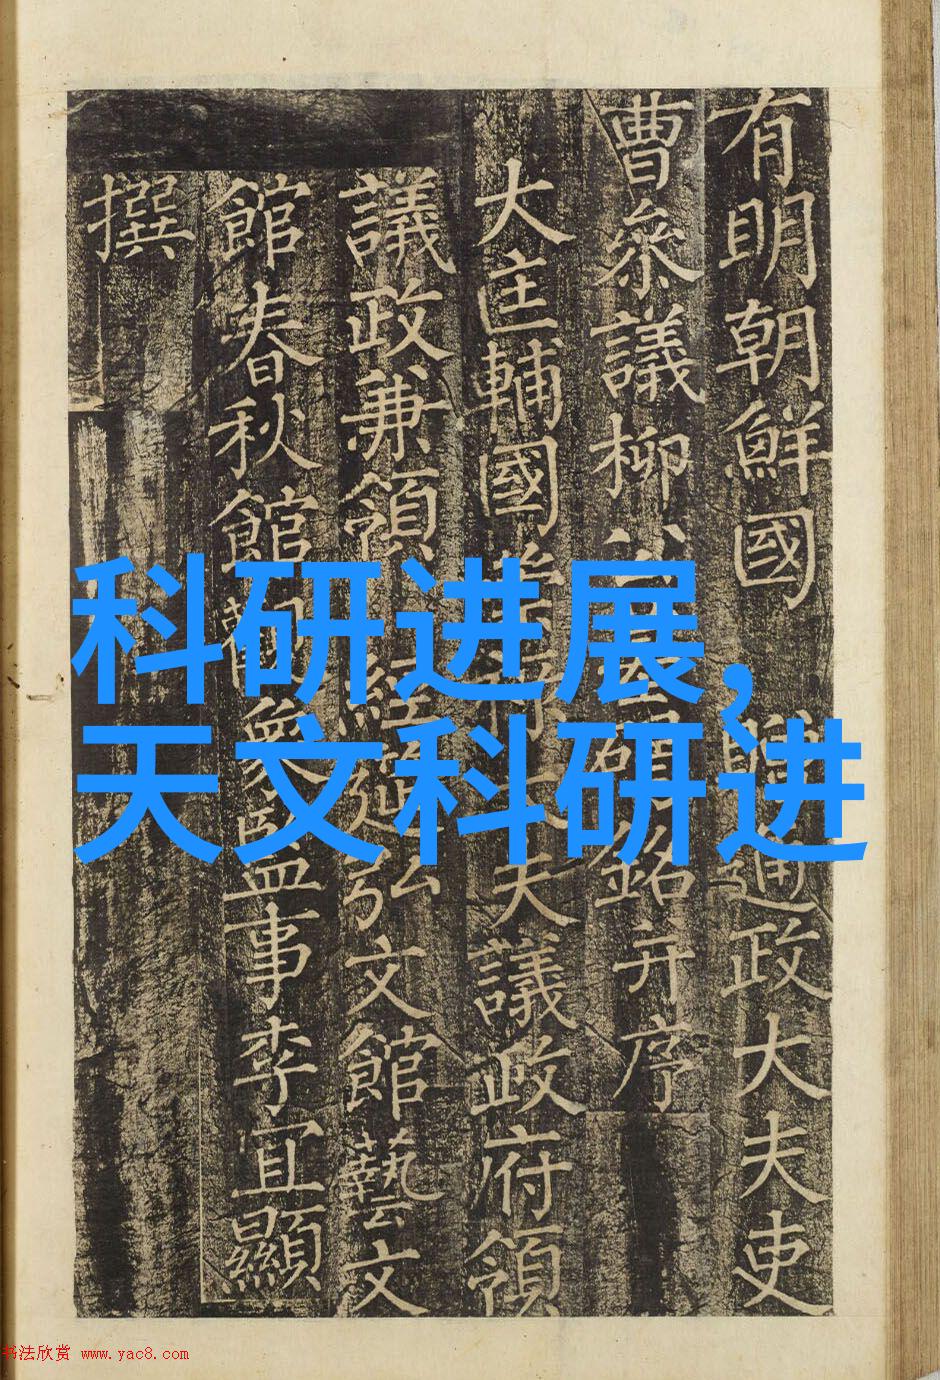 有明朝鮮國 贈通政大夫吏
曹叅議柳公墓碣銘并序
大匡輔國崇祿大夫議政府領
議政兼領 經筵弘文館藝文
館春秋館觀象監事李宜顯
撰
科研进展,
天文科研进
书法欣赏 www.yac8.com